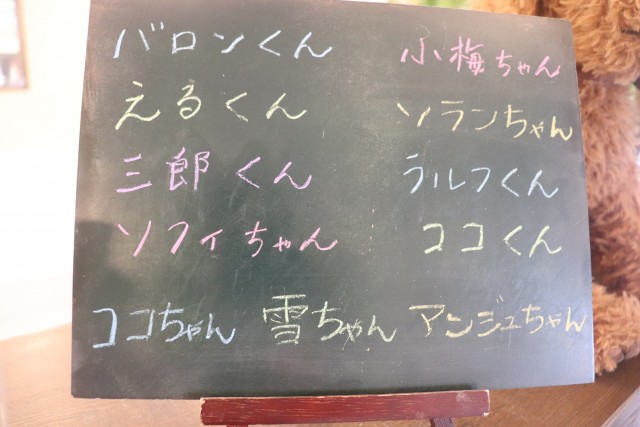 バロンくん 小梅ちゃん
えるくん ソランちゃん
三郎くん ラルフくん
ソフィちゃん ココくん
ココちゃん 雪ちゃん アンジュちゃん